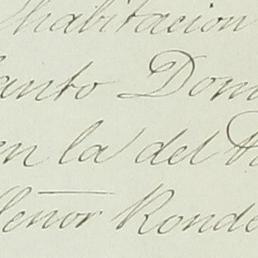 habitacion
anto Dom
en la del
Señor Ronde